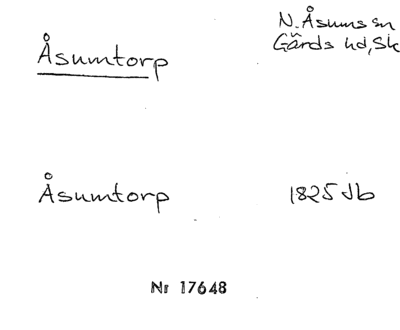 N. Åsums sn
Åsumtorp
Gärds hd, Sk
Åsumtorp
1825 Jb
Nr 17648